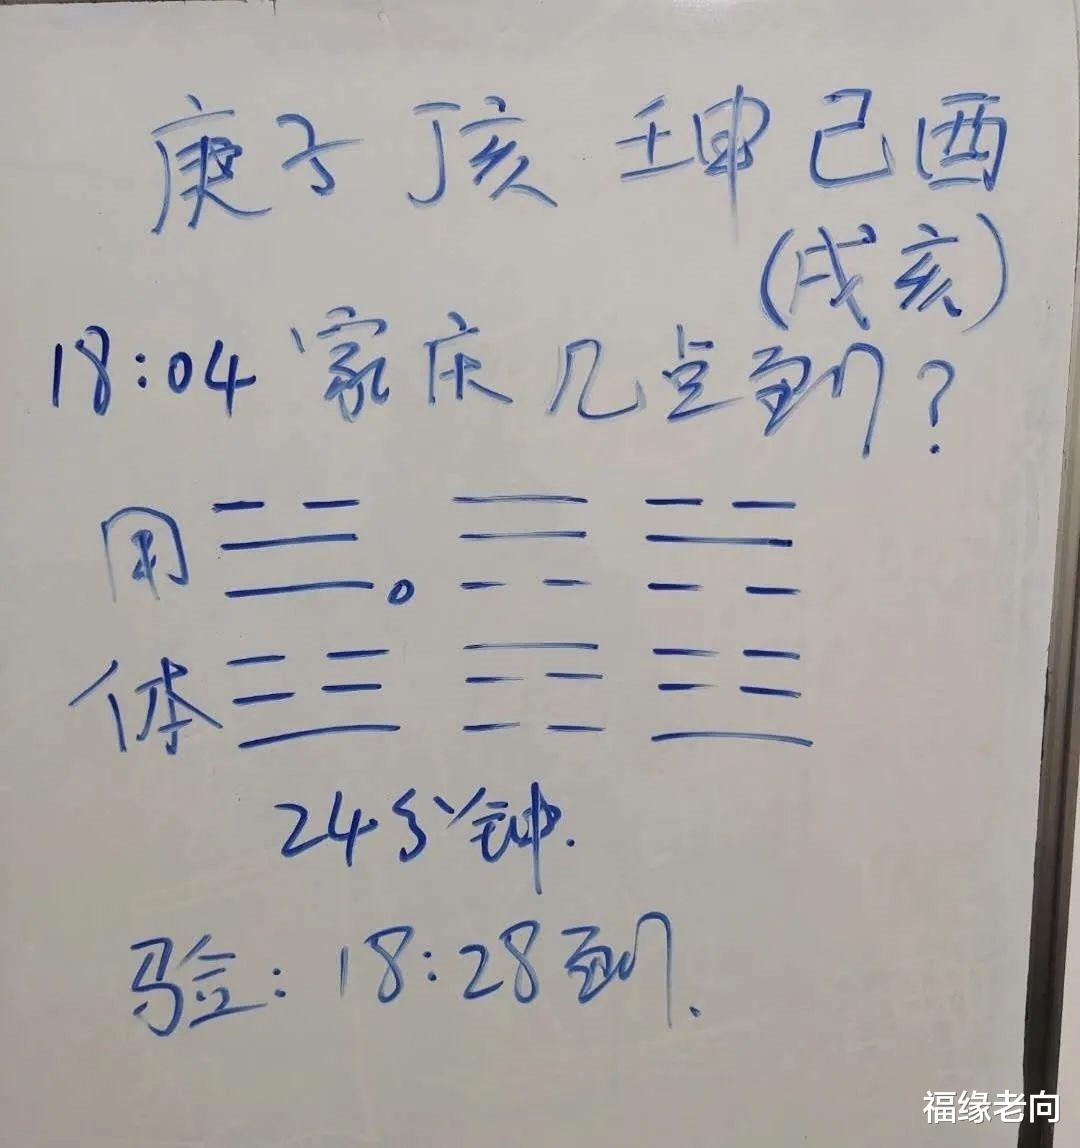 庚子 丁亥 壬申 己酉
(戌亥)
18:04 家庆几点到?
用
体
24分钟.
验: 18:28到.
福缘老向